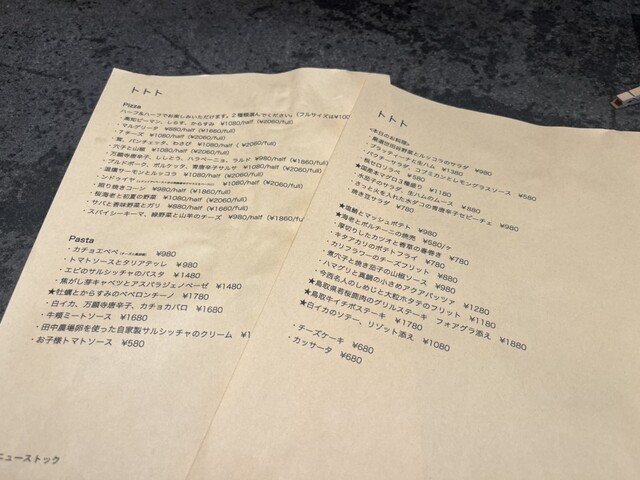 トトト
Pizza
ハーフ&ハーフでお楽しみいただけます。2種類選んでください。(フルサイズは¥100
・高知ピーマン、しらす、からすみ ¥1080/half (¥2060/full)
・マルゲリータ ¥880/half (¥1660/full)
・7チーズ ¥1080/half (¥2060/full)
・茸、パンチェッタ、わさび ¥1080/half (¥2060/full)
・穴子と山椒 ¥1080/half (¥2060/full)
・万願寺唐辛子、ししとう、ハラペーニョ、ラルド ¥980/half (¥1860/full)
・プルドポーク、ポルケッタ、青唐辛子サルサ ¥980/half (¥1860/full)
・温燻サーモンとルッコラ ¥1080/half (¥2060/full)
・ンドゥイヤ ¥1080/half (¥2060/full)
・照り焼きコーン ¥980/half (¥1860/full)
・桜海老と初夏の野菜 ¥1080/half (¥2060/full)
・サバと香味野菜とガリ ¥880/half (¥1660/full)
・スパイシーキーマ、緑野菜と山羊のチーズ ¥980/half (¥1860/full
Pasta
・カチョエペペ ¥980
・トマトソースとタリアテッレ ¥980
・エビのサルシッチャのパスタ ¥1480
・焦がし芽キャベツとアスパラジェノベーゼ ¥1480
★牡蠣とからすみのペペロンチーノ ¥1780
・白イカ、万願寺唐辛子、カチョカバロ ¥1680
・牛頬ミートソース ¥1680
・田中農場卵を使った自家製サルシッチャのクリーム ¥1
・お子様トマトソース ¥580
ニューストック
トトト
<本日のお料理>
ルッコラのサラダ ¥980
・ブラッティーナと生ハム ¥1380
・パクチーサラダ、コブミカンとレモングラスソース ¥580
・帆セロリラペ ¥580
マグロ3種盛り ¥1180
・水茄子のサラダ、生ハムのムース ¥880
・さっとスを入れた水ダコの青唐辛子セビーチェ ¥980
・焼き豆サラダ ¥780
★塩鯖とマッシュポテト ¥980
★海老とポルチーニの焼売 ¥580/ヶ
・厚切りしたカツオと香草の春巻き ¥780
・キタアカリのポテトフライ ¥780
・カリフラワーのチーズフリット ¥880
・煮穴子と焼き茄子の山椒ソース ¥980
・ハマグリと真鯛の小さめアクアパッツァ ¥1280
・今西名人のしめじと大粒ホタテのフリット ¥1180
★鳥取県若桜鹿肉のグリルステーキ フォアグラ添え ¥1880
★鳥取牛イチボステーキ ¥1780
★白イカのソテー、リゾット添え ¥1080
・チーズケーキ ¥680
・カッサータ ¥680